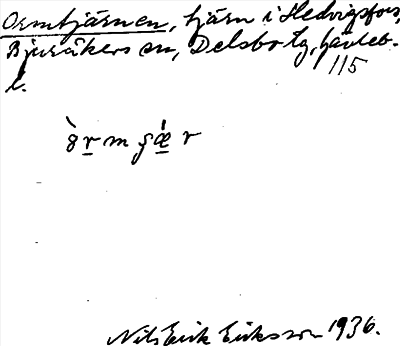 Ormtjärnen, tjärn i Hedvigsfors,
Bjuråkers sn, Delsbo tg, Gävleb.
115
l.
Nils Erik Eriksson 1936.